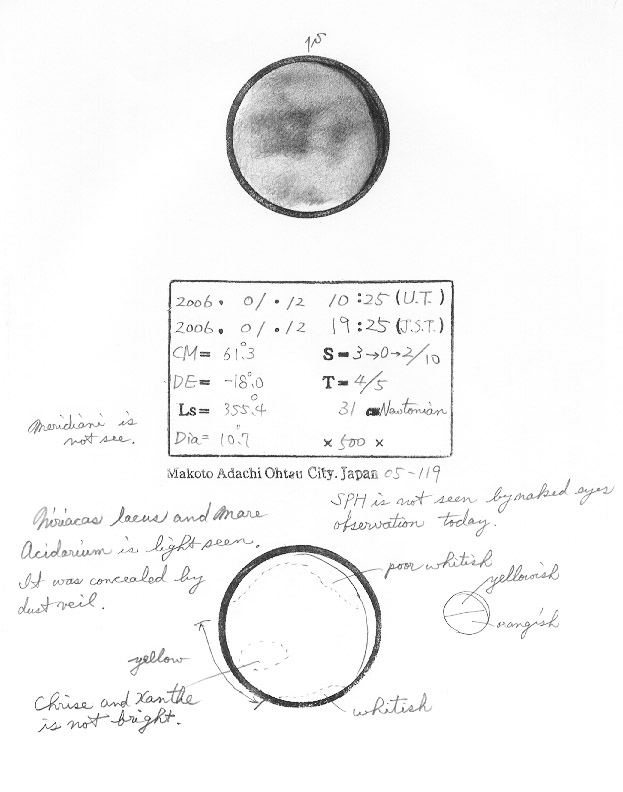 2006. 01. 12 10:25 (U.T.)
2006. 01. 12 19:25 (J.S.T.)
CM= 61.°3 S=3→0→2/10
DE= -18.°0 T=4/5
Ls= 355.°4 31 cm Newtonian
Dia= 10."7 × 500 ×
Meridiani is
not see.
Makoto Adachi Ohtsu City. Japan 05-119
SPH is not seen by naked eyes
observation today.
Niriacas lacus and Mare
Acidarium is light seen.
It was concealed by
dust veil.
poor whitish
yellowish
orangish
yellow
Chrise and Xanthe
is not bright.
whitish